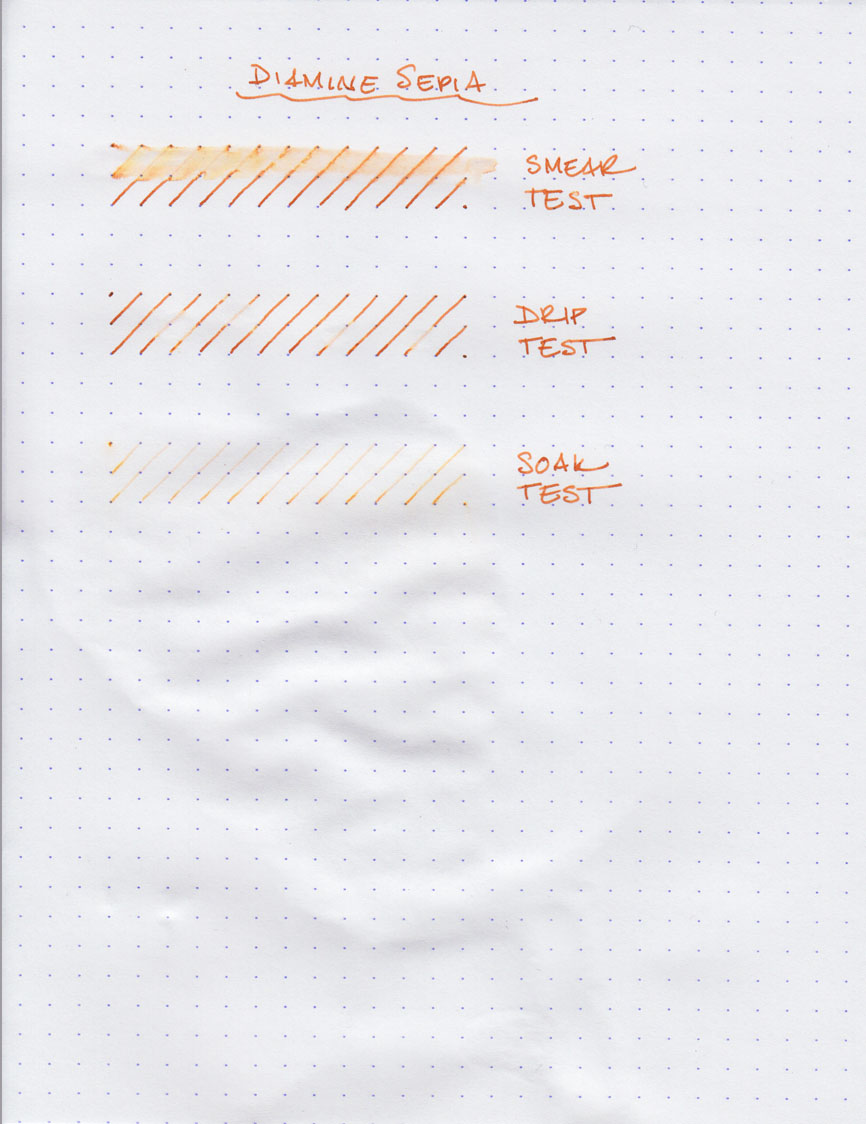 DIAMINE SEPIA
SMEAR
TEST
DRIP
TEST
SOAK
TEST